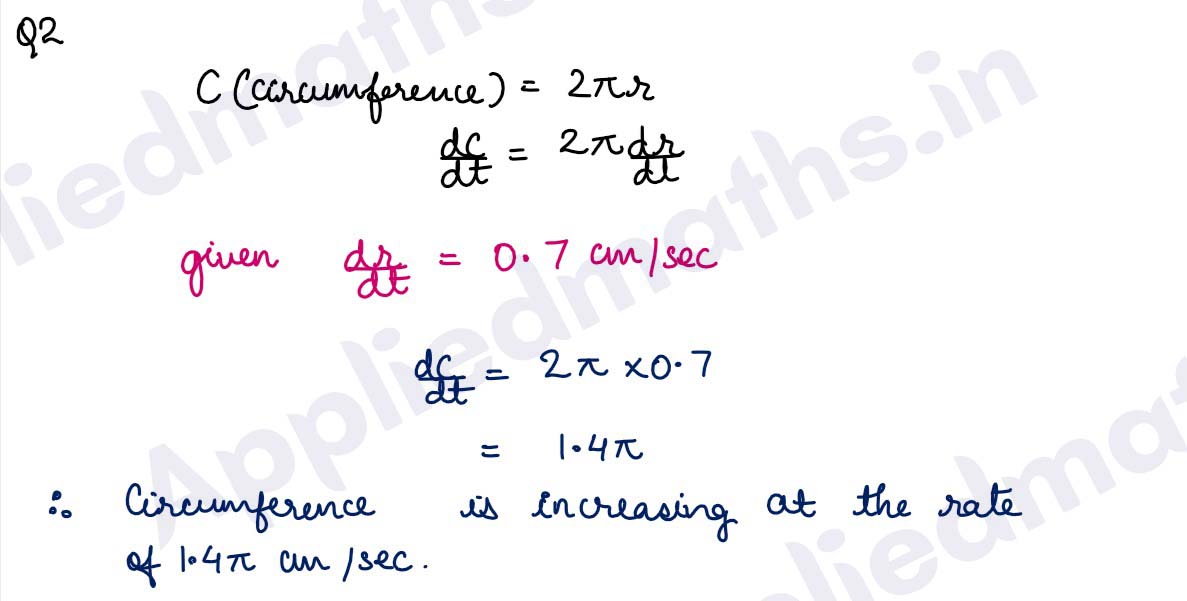 Q2
C (circumference) = 2πr
dc/dt = 2π dr/dt
given dr/dt = 0.7 cm/sec
dc/dt = 2π × 0.7
= 1.4π
∴ Circumference is increasing at the rate
of 1.4π cm/sec.
Appliedmaths.in